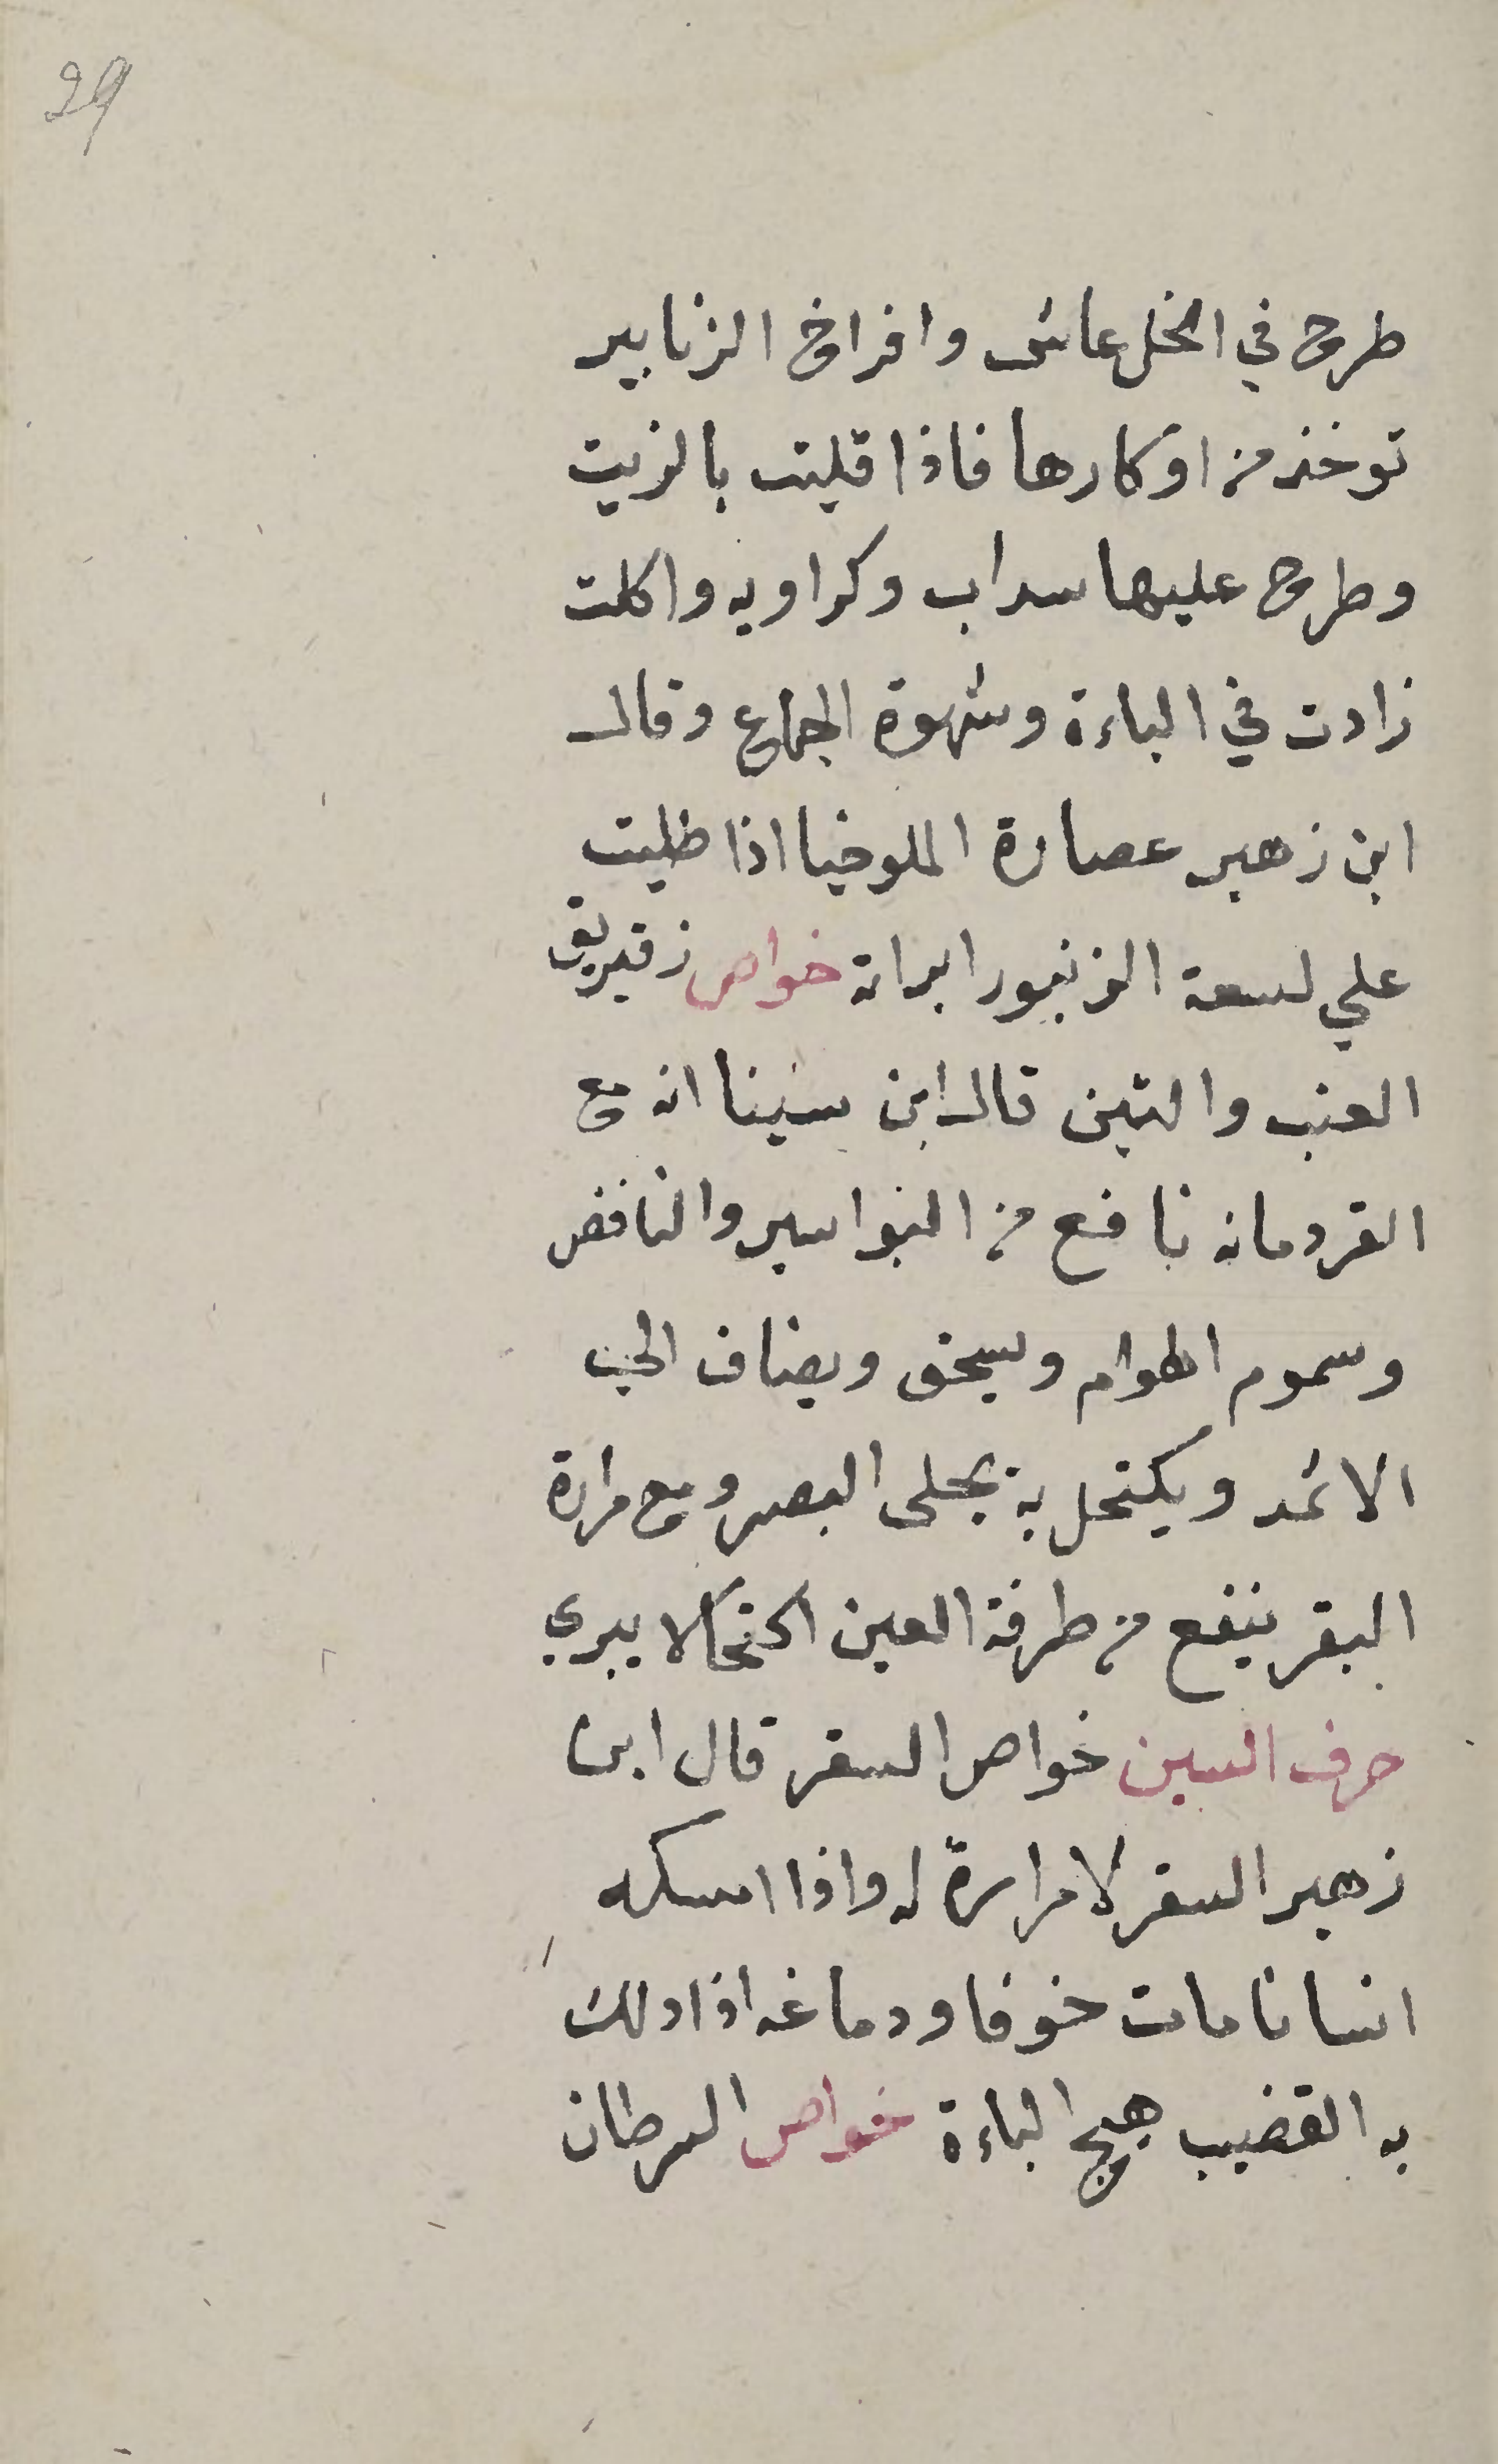 29
طرح في الخل عاش وافراخ الزنابير
توخذ من اوكارها فاذا قليت بالزيت
وطرح عليها سداب وكراويه واكلت
زادت في الباءة وشهوة الجماع وقال
ابن زهير عصارة الملوخيا اذا طليت
علي لسعة الزنبور ابراته خواص
العنب والتين قال ابن سينا انه مع
القردمانه نافع من البواسير والنافض
وسموم الهوام ويسحق ويضاف الى
الاثمد ويكتحل به يجلى البصر ومع مرارة
البقر ينفع من طرفة العين اكتحالا يبري
حرف السين خواص السقر قال ابن
زهير السقر لا مرارة له واذا امسكه
انسانا مات خوفا ودماغه اذا دلك
به القضيب هيج الباءة خواص السرطان